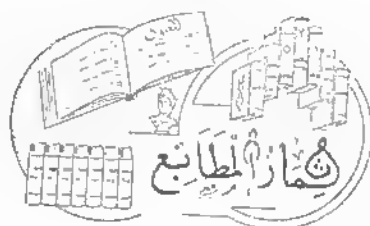 ثِمَارُ المَطَابِع